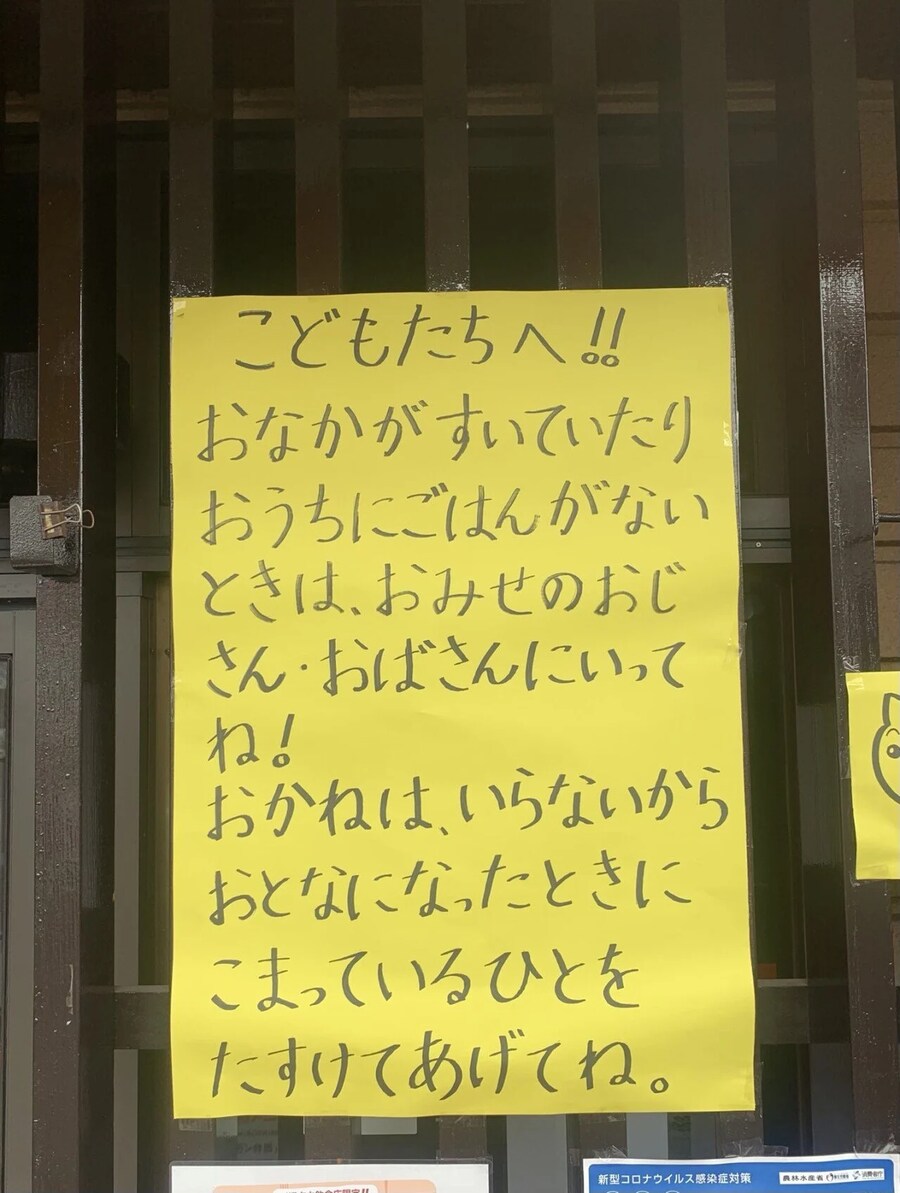 こどもたちへ!!
おなかがすいていたり
おうちにごはんがない
ときは、おみせのおじ
さん・おばさんにいって
ね!
おかねは、いらないから
おとなになったときに
こまっているひとを
たすけてあげてね。
新型コロナウイルス感染症対策
農林水産省